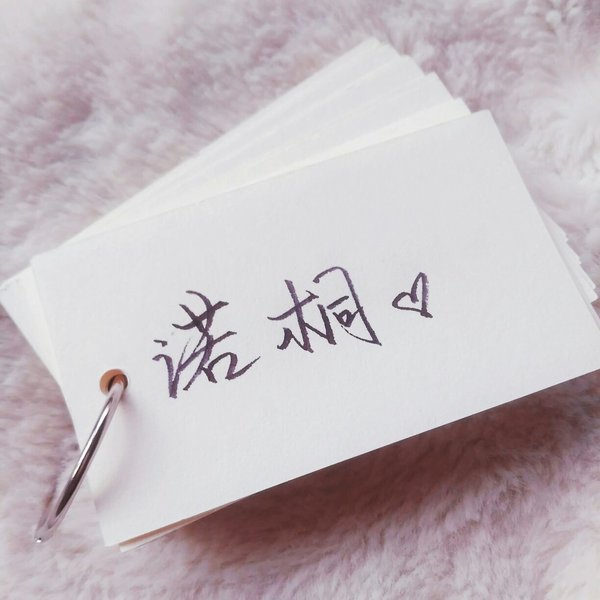 诺桐♡